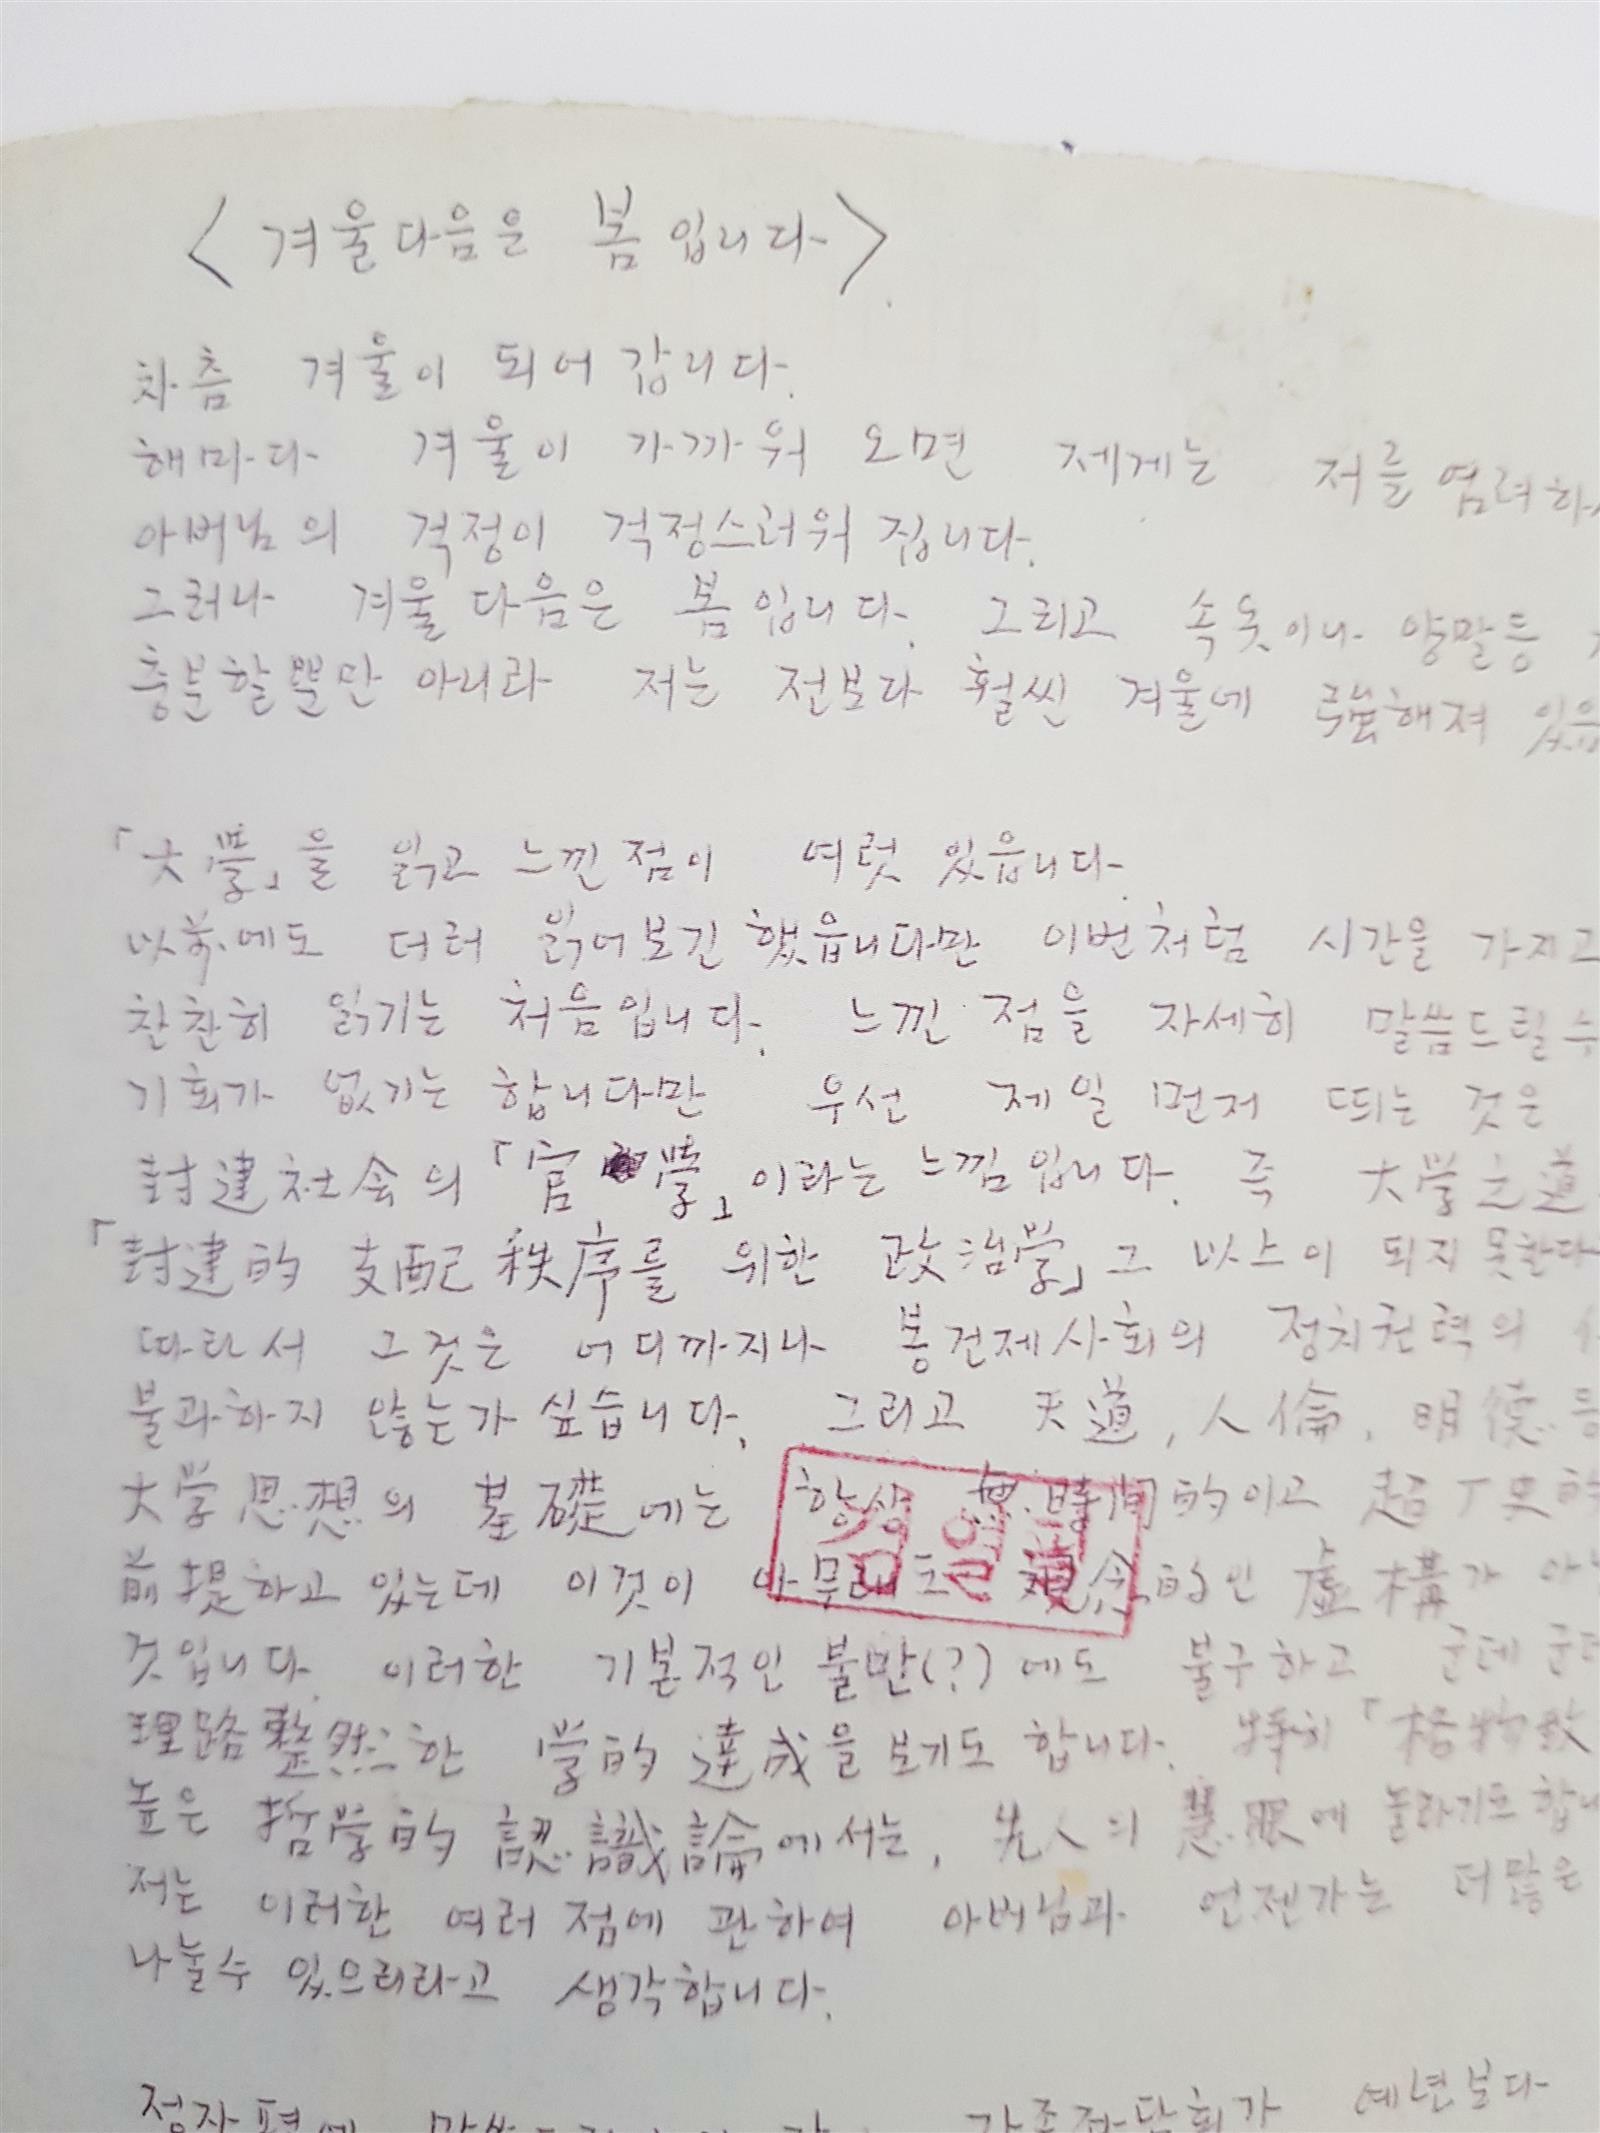 <겨울 다음은 봄입니다>
차츰 겨울이 되어 갑니다.
해마다 겨울이 가까워 오면 제게는 저를 염려하시
아버님의 걱정이 걱정스러워 집니다.
그러나 겨울 다음은 봄입니다. 그리고 속옷이나 양말등
충분할뿐만 아니라 저는 전보다 훨씬 겨울에 强해져 있읍
「大學」을 읽고 느낀 점이 여럿 있읍니다.
以前에도 더러 읽어보긴 했읍니다만 이번처럼 시간을 가지고
찬찬히 읽기는 처음입니다. 느낀 점을 자세히 말씀드릴 수
기회가 없기는 합니다만 우선 제일 먼저 띄는 것은
封建社会의 「官學」이라는 느낌입니다. 즉 大學之道
「封建的 支配秩序를 위한 政治學」 그 以上이 되지 못한다
따라서 그것은 어디까지나 봉건제사회의 정치권력의
불과하지 않는가 싶습니다. 그리고 天道, 人倫, 明德 등
大学思想의 基礎에는 항상 無時間的이고 超歷史的
前提하고 있는데 이것이 아무래도 観念的인 虛構가 아
것입니다. 이러한 기본적인 불만(?)에도 불구하고 군데군데
理路整然한 学的 達成을 보기도 합니다. 特히 「格物致
높은 哲學的 認識論에서는, 先人의 慧眼에 놀라기도 합니
저는 이러한 여러 점에 관하여 아버님과 언젠가는 더많은
나눌수 있으리라고 생각합니다.
정자편에 가족좌담회가 예년보다